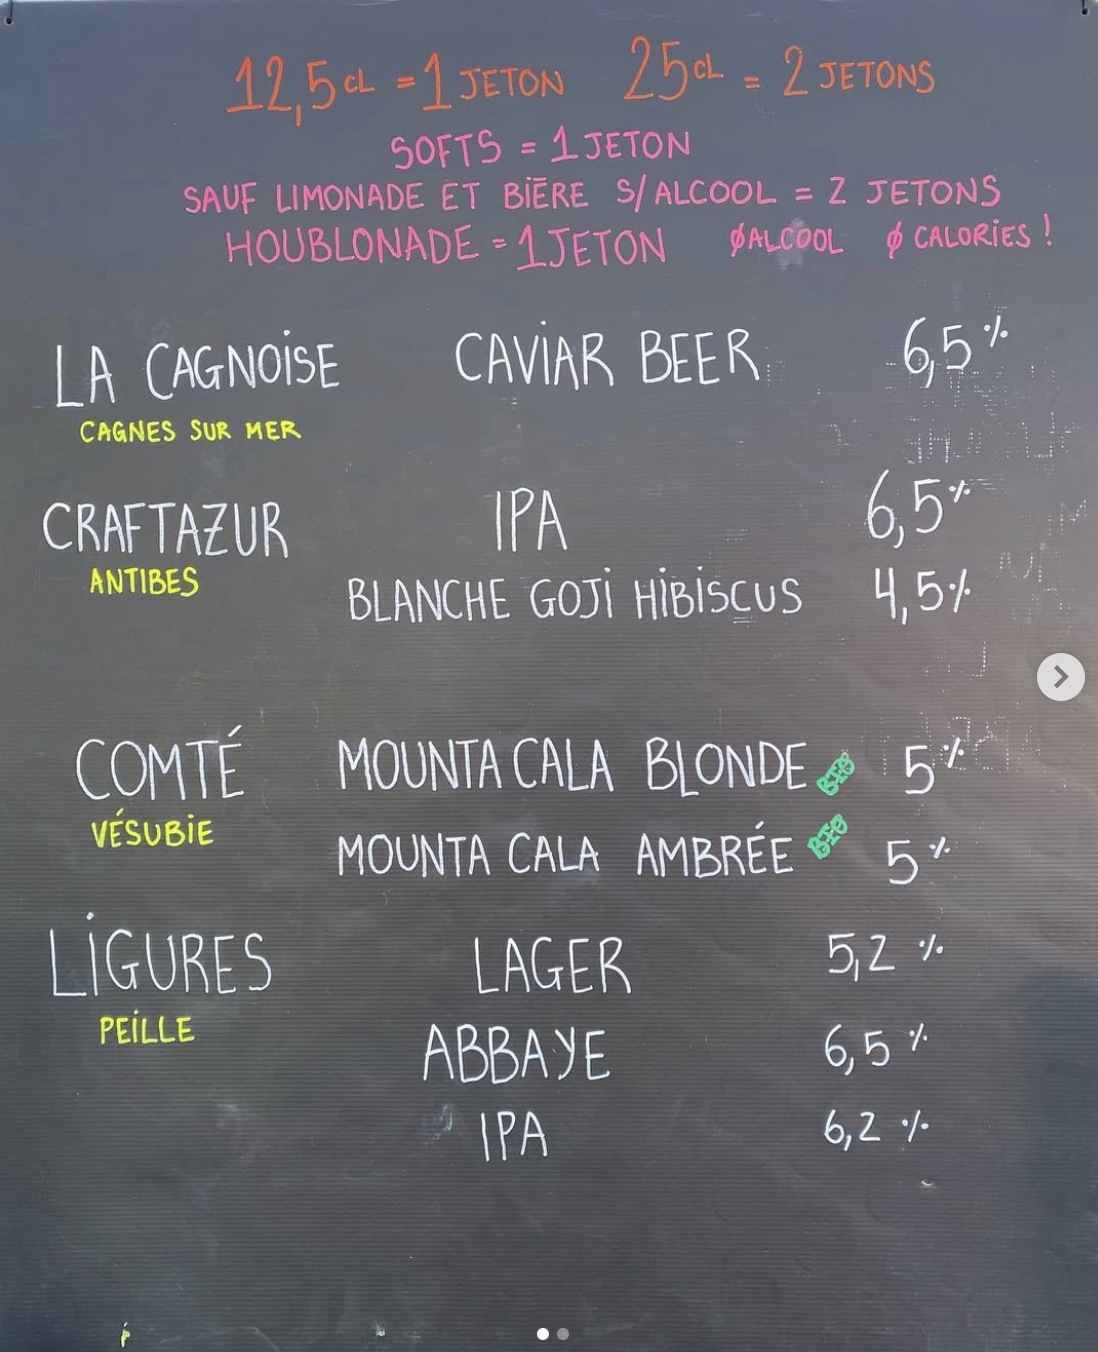 12,5 CL = 1 JETON 25 CL = 2 JETONS
SOFTS = 1 JETON
SAUF LIMONADE ET BIĒRE S/ALCOOL = 2 JETONS
HOUBLONADE = 1 JETON ØALCOOL Ø CALORIES !
LA CAGNOISE CAVIAR BEER 6,5 %
CAGNES SUR MER
CRAFTAZUR IPA 6,5 %
ANTIBES
BLANCHE GOJI HIBISCUS 4,5 %
COMTÉ MOUNTA CALA BLONDE BIO 5 %
VÉSUBIE
MOUNTA CALA AMBRÉE BIO 5 %
LIGURES LAGER 5,2 %
PEILLE
ABBAYE 6,5 %
IPA 6,2 %